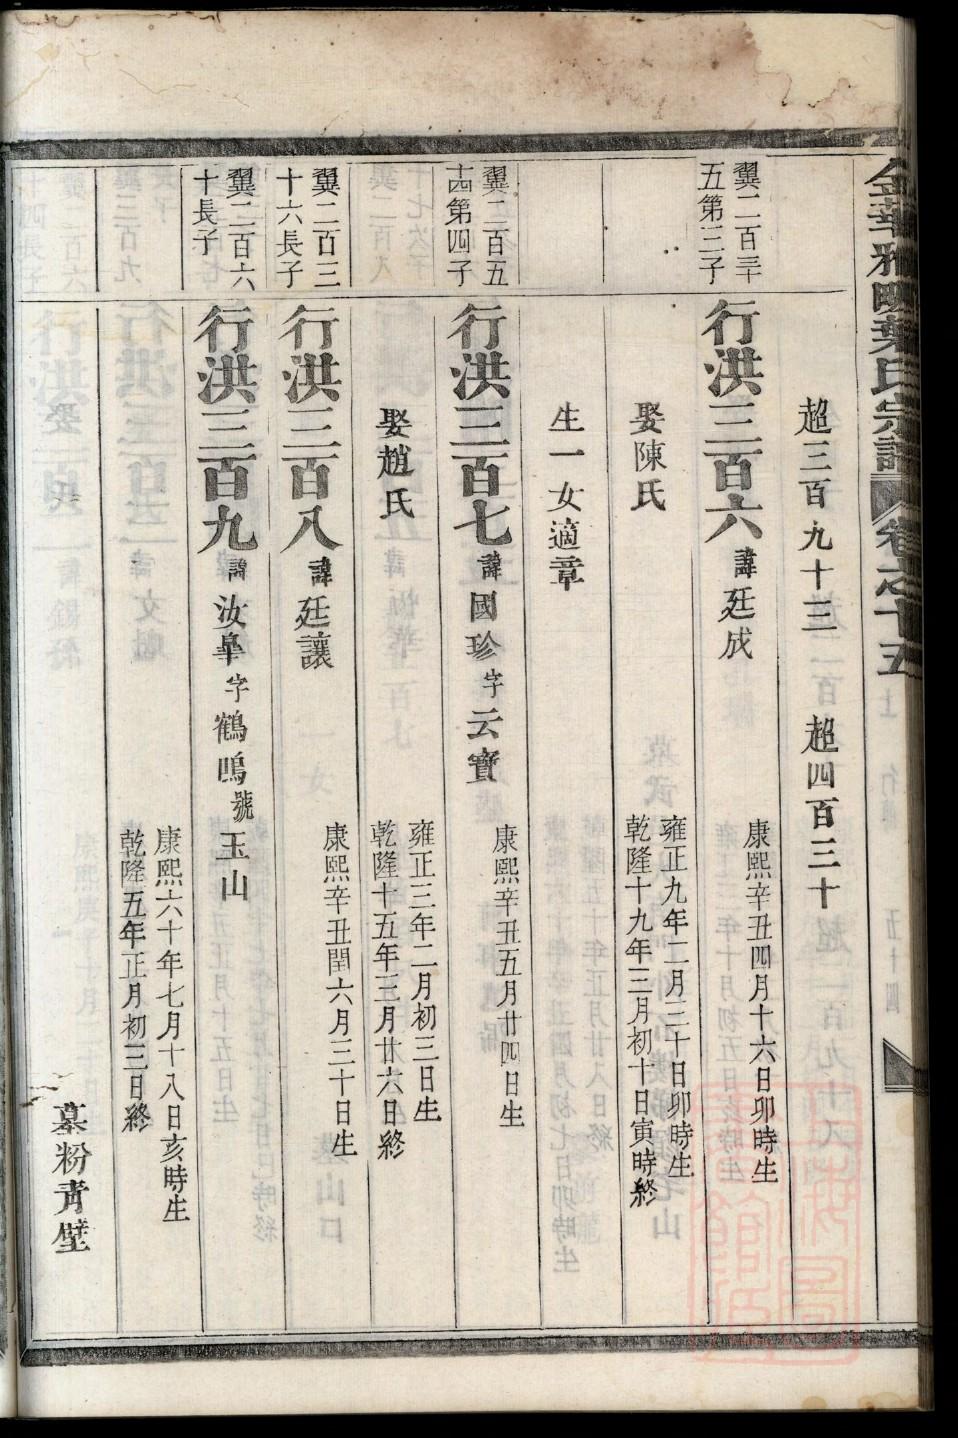 金華雅畈葉氏宗譜 卷之十五
超三百九十三 超四百三十
翼二百三十五第三子
行洪三百六 諱廷成 康熙辛丑四月十六日卯時生
娶陳氏 雍正九年二月二十日卯時生
乾隆十九年三月初十日寅時終
生一女適章
翼二百五十四第四子
行洪三百七 諱國珍 字云寶 康熙辛丑五月廿四日生
娶趙氏 雍正三年二月初三日生
乾隆十五年三月廿六日終
翼二百三十六長子
行洪三百八 諱廷讓 康熙辛丑閏六月三十日生
翼二百六十長子
行洪三百九 諱汝皋 字鶴鳴 號玉山 康熙六十年七月十八日亥時生
乾隆五年正月初三日終
墓粉青壁